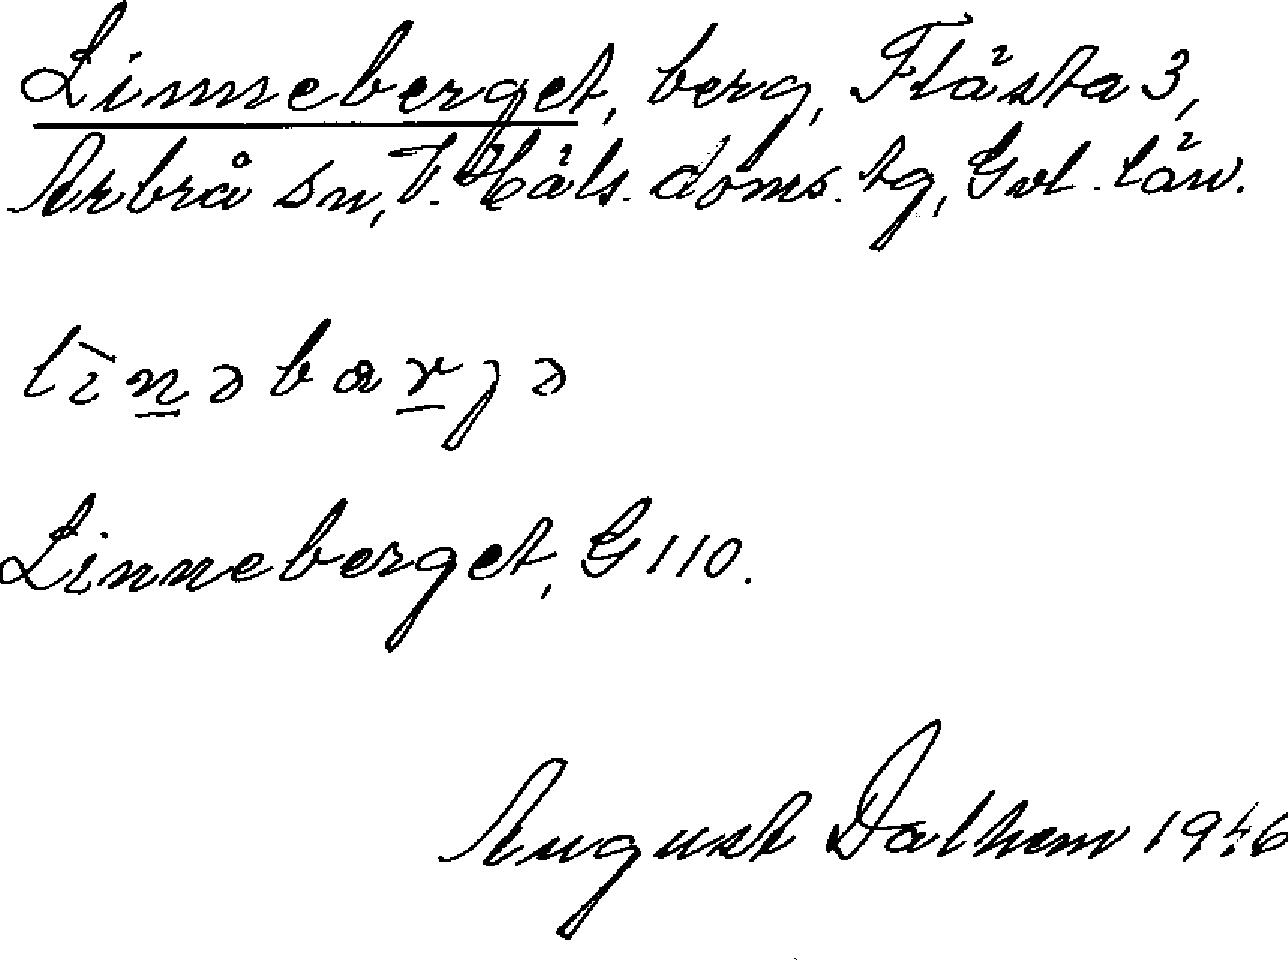 Linneberget, berg, Flästa 3,
Arbrå sn, V. Häls. doms. tg, Gvl. län.
lìnəbarjə
Linneberget, G 110.
August Dalhem 1946